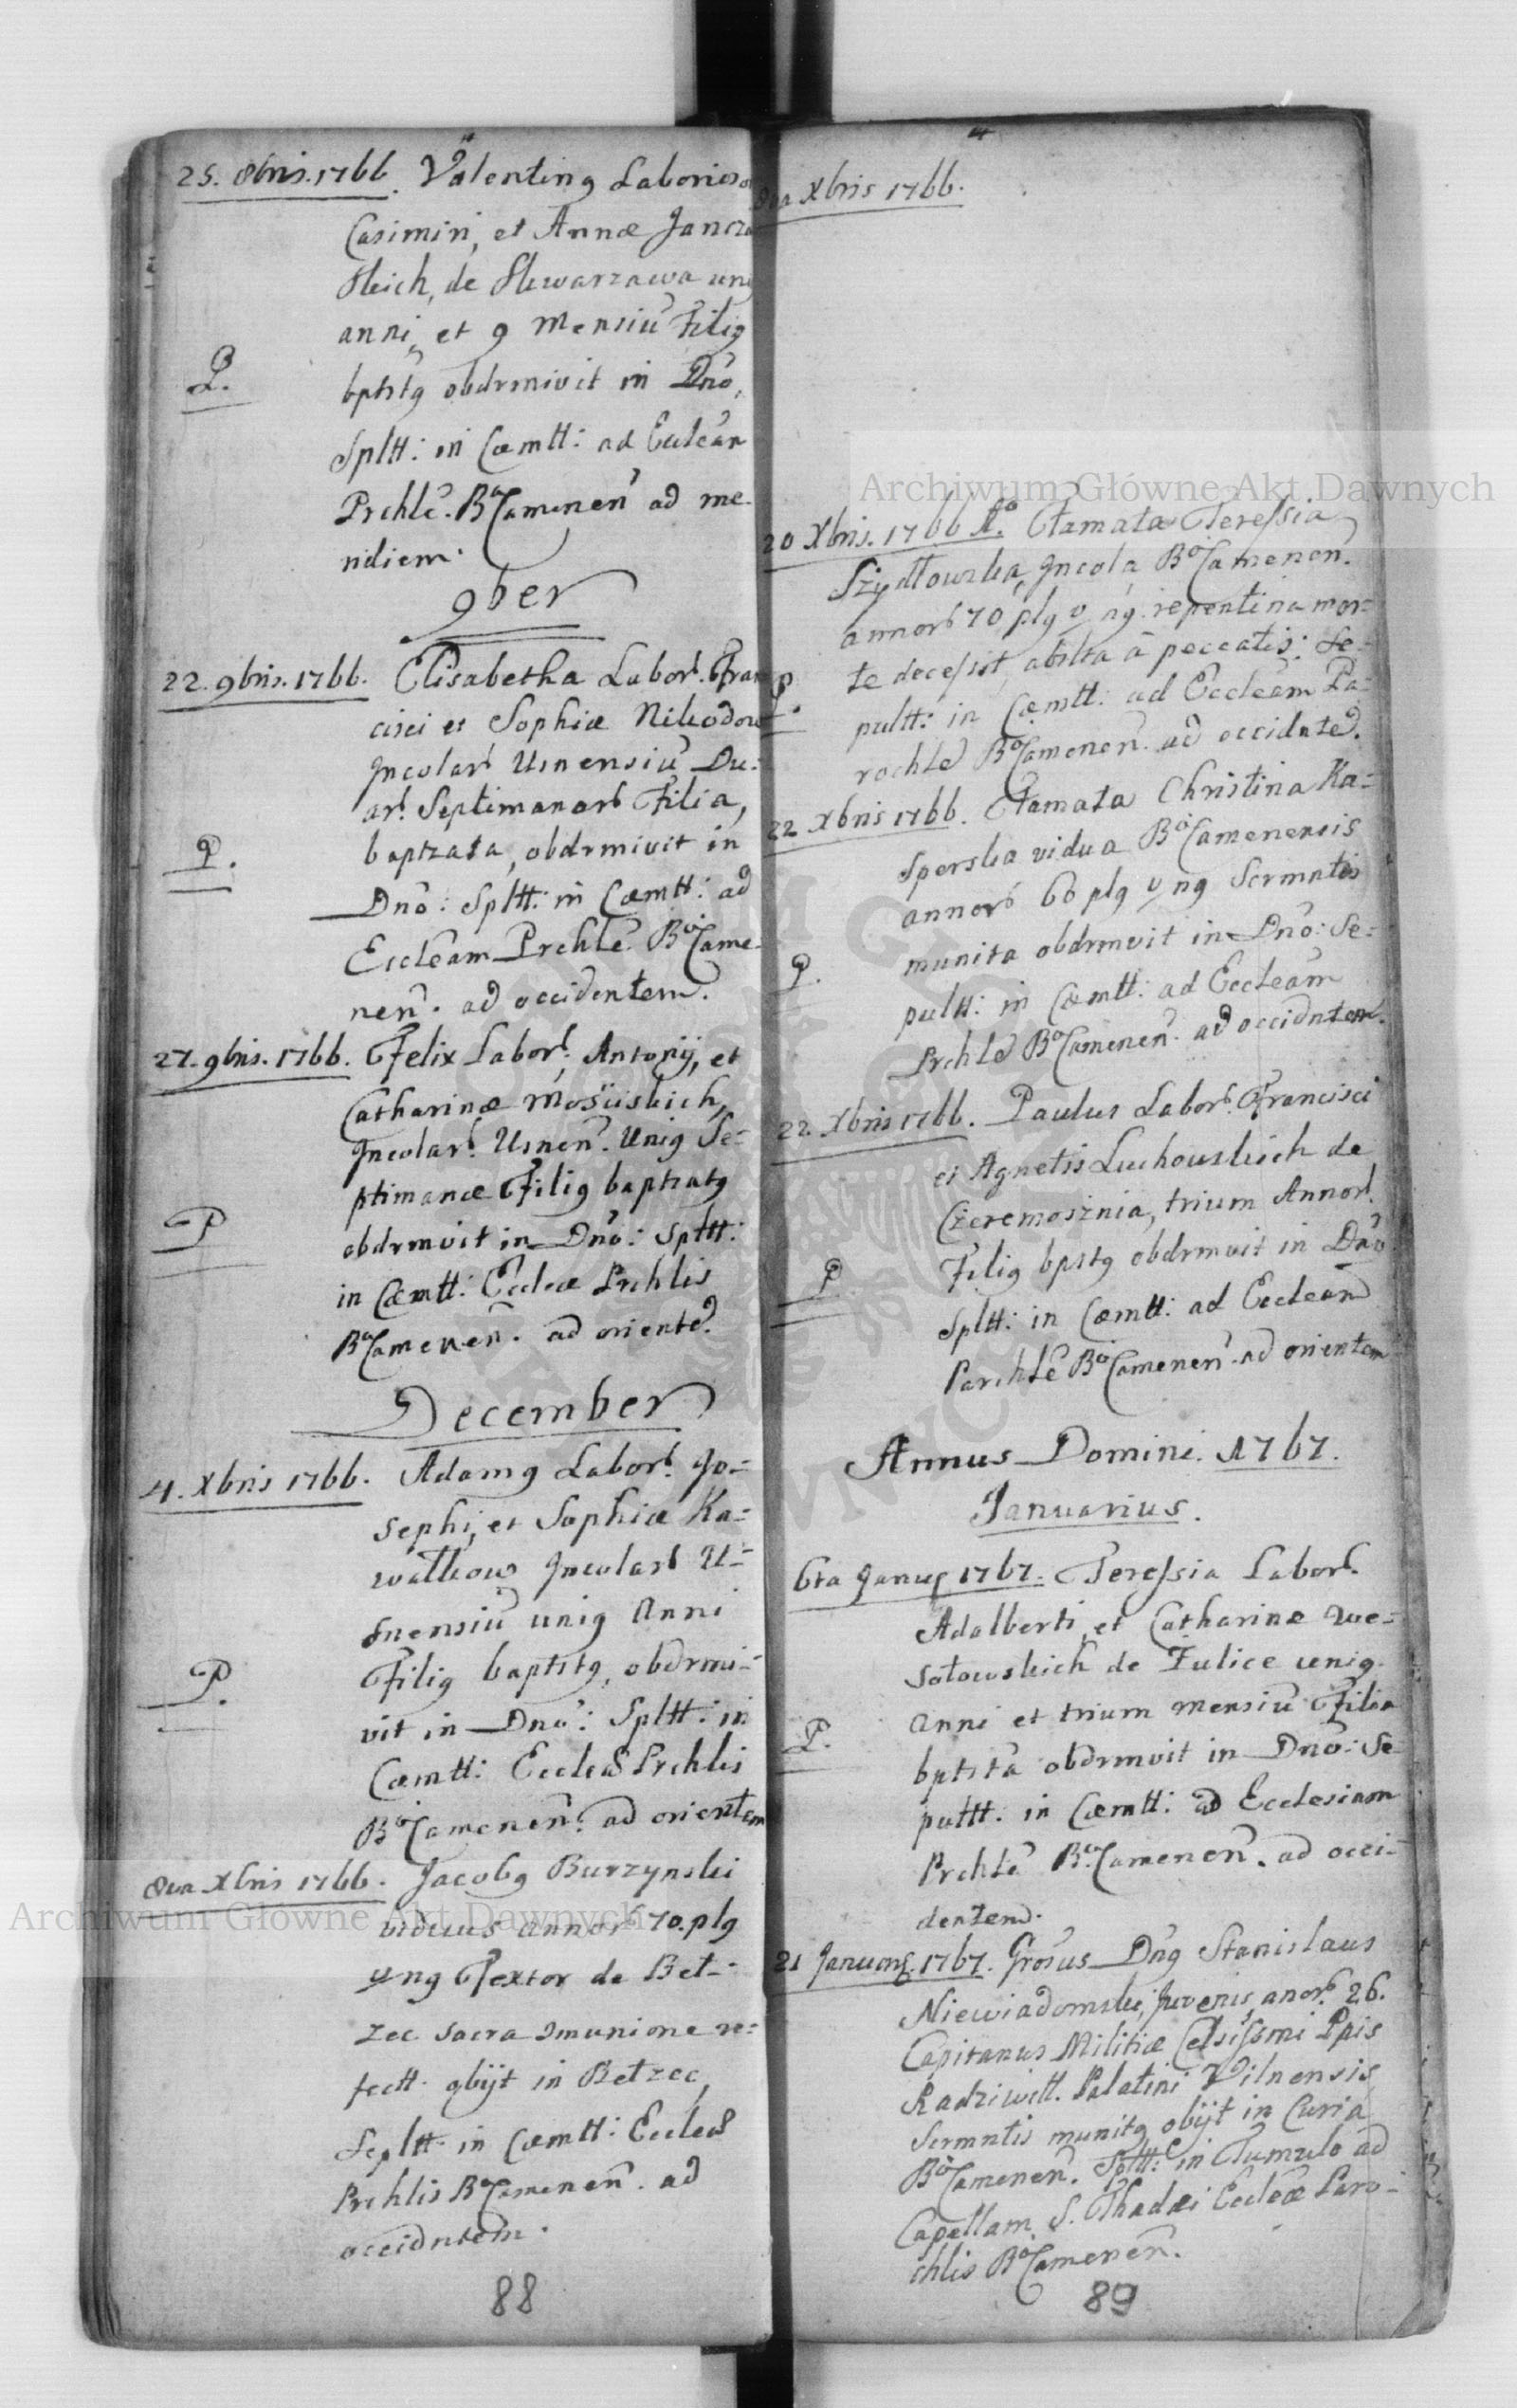 25. 8bris. 1766. Valentinꝯ Laborioso
Casimiri, et Annæ Jancza
skich, de Skwarzawa uni
anni, et 9 Mensiu Filiꝯ
P.
bptstꝯ obdrmivit in Dno,
Spltt: in Cœmtt: ad Eccleãm
Prchlẽ. BoCamenen ad me-
ridiem.
9ber
22. 9bris. 1766. Elisabetha Labor. Fran
cisci et Sophiæ Nikodow
Incolar Usnensiu Du-
ar Septimanor Filia,
P.
baptzata, obdrmivit in
Dno: Spltt: in Cœmtt: ad
Eccleam Prchle BoCame-
nen. ad occidentem.
27. 9bris. 1766. Felix Labor. Antonij, et
Catharinæ Mosciskich,
Incolar. Usnen. Uniꝯ Se-
ptimanæ Filiꝯ baptzatꝯ
P
obdrmvit in Dno: Spltt:
in Cœmtt: Eccleæ Prchlis
BoCamenen. ad oriente.
December
4. Xbris 1766. Adamꝯ Labor. Jo-
sephi, et Sophiæ Ka-
walkow Incolar U-
snensiu uniꝯ Anni
P.
Filiꝯ baptstꝯ, obdrmi-
vit in Dno: Spltt: in
Cœmtt: Eccleæ Prchlis
BoCamenen. ad orientem
8va Xbris 1766. Jacobꝯ Burzynski
viduus annor 70. plꝯ
vꝫ nꝯ Textor de Bet-
zec sacra Jmunione re-
fectt. obijt in Betzec,
Sepltt. in Cœmtt: Eccleæ
Prchlis BoCamenen. ad
occidntem.
88
8va Xbris 1766.
20 Xbris. 1766 Ao. Famata Teressia
Szydłowska, Incola BoCamenen.
annor 70 plꝯ v nꝯ. repentina mor-
te decessit, absltta à peccatis: Se-
P.
pultt: in Cœmtt: ad Eccleam Pa-
rochle BoCamenen. ad occidnte.
22 Xbris 1766. Famata Christina Ka-
sperska vidua BoCamenensis
annor 66 plꝯ v nꝯ Scrmntis
munita obdrmvit in Dno: Se-
P.
pultt: in Cœmtt: ad Eccleam
Prchle BoCamenen. ad occidntem.
22. Xbris 1766. Paulus Labor. Francisci
et Agnetis Luchowskich de
Czeremosznia, trium Annor.
Filiꝯ bpstꝯ obdrmvit in Dno
P.
Spltt: in Cœmtt: ad Eccleam
Parchle BoCamenen. ad orientem
Annus Domini. 1767.
Januarius.
6ta Januar 1767. Teressia Labor.
Adalberti, et Catharinæ We-
sołowskich de Fulice uniꝯ
Anni et trium Mensiu Filia
P.
bptsta obdrmvit in Dno: Se-
pultt. in Cœmtt: ad Ecclesiam
Prchle BoCamenen. ad occi-
dentem.
21 Januar. 1767. Grosus Dnꝯ Stanislaus
Niewiadomski, Juvenis, anor. 26.
Capitanus Militiæ Celsissmi Ppis
Radziwill. Palatini Vilnensis,
Scrmntis munitꝯ obijt in Curia
BoCamenen. Spltt: in Tumulo ad
Capellam S. Thadæi Eccleæ Paro-
chlis BoCamenen.
89
Archiwum Główne Akt Dawnych
Archiwum Główne Akt Dawnych